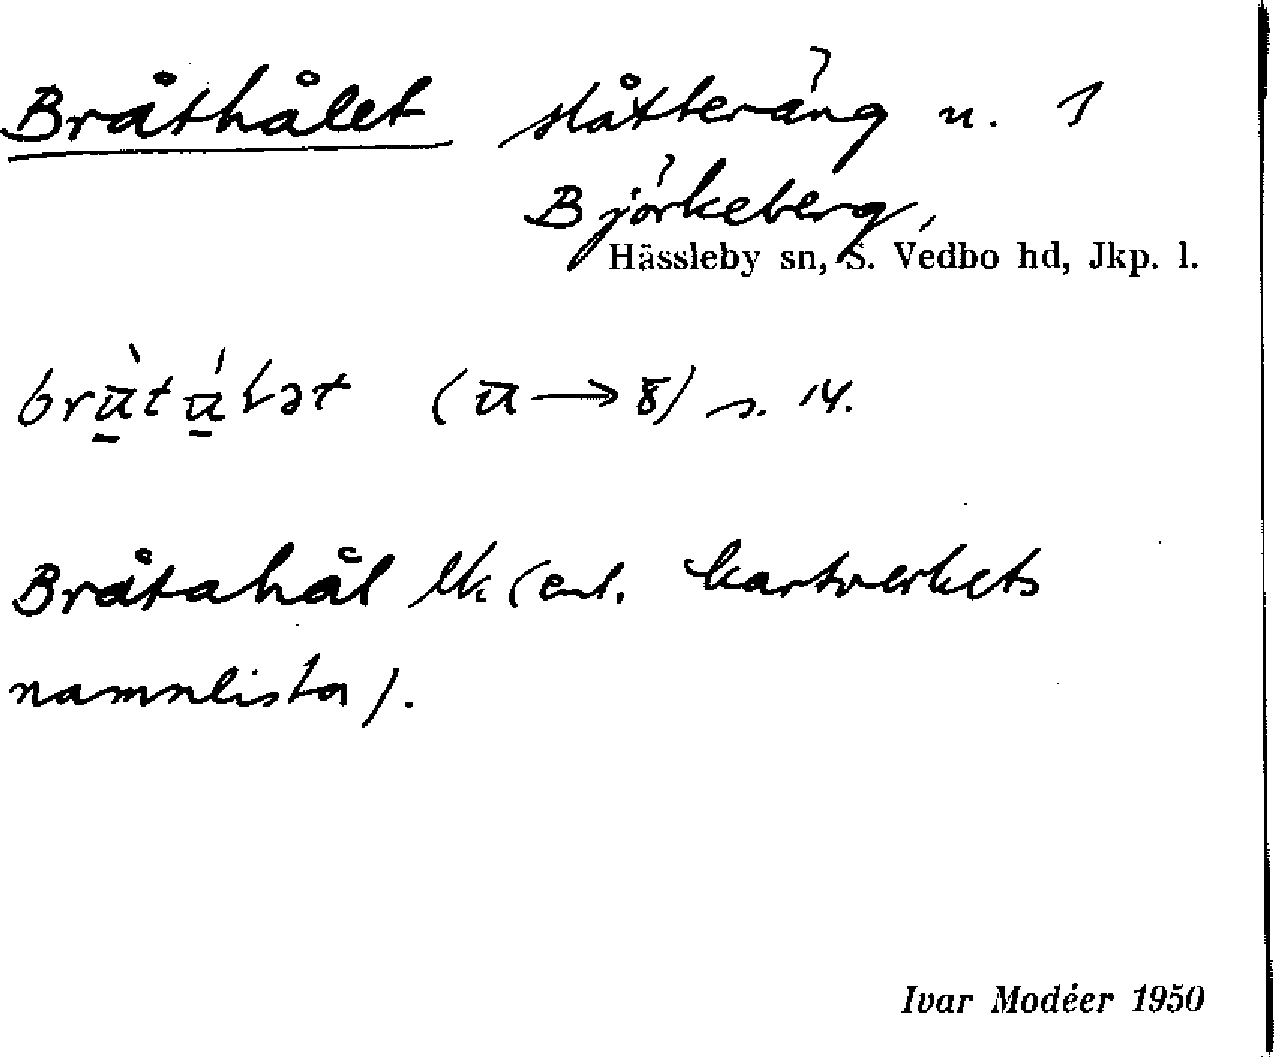 Bråthålet slåtteräng n. 1
Björkeberg,
Hässleby sn, S. Vedbo hd, Jkp. l.
s. 14.
Bråtahål (enl. kartverkets
namnlista).
Ivar Modéer 1950